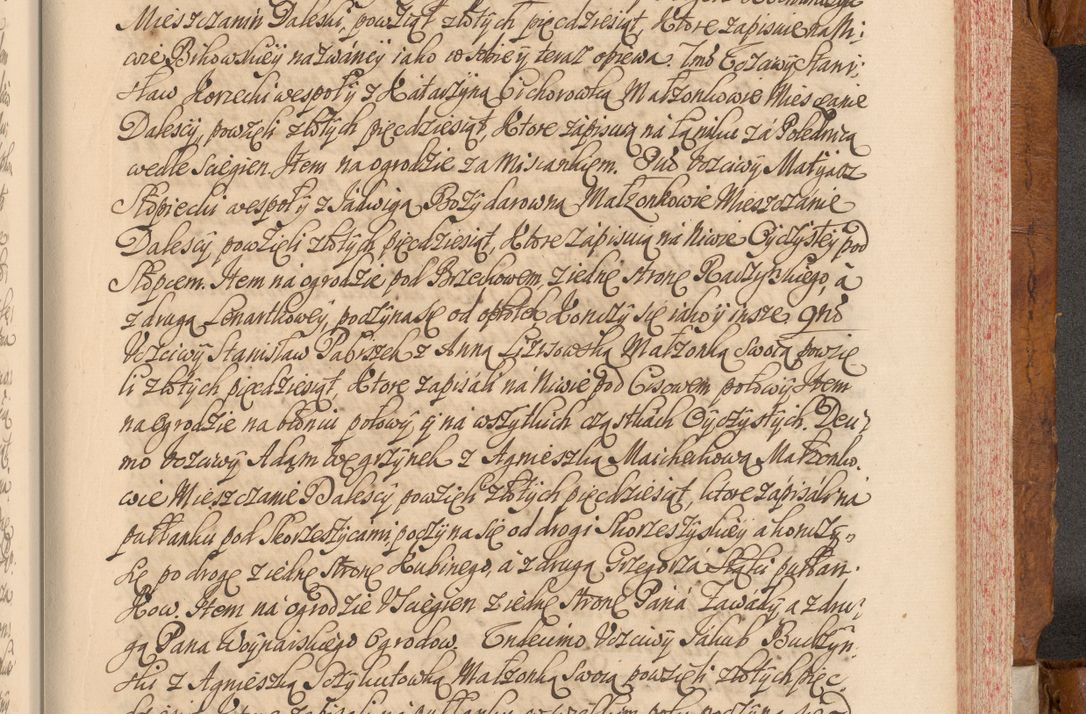 Mieszczanin Daleski, powziął złotych pięcdziesiąt, Ktore zapisuie na Ni,
wie Bikowskiey nazwaney iako w sobie y teraz opiewa. Imo Uczciwy Stani,
sław Korzecki wespoły z Katarzyną Cichorowką Małzonkowie Miesczanie
Dalescy, powzieli złotych pięcdziesiąt, Ktore zapisuią ná Łąniku zá Polednicą
wedle Sciegien. Item na ogrodzie za Misiankiem. 8uo Uczciwy Matyiasz
Słopiecki wespoły z Jadwigą Bozydarowną Małzonkowie Mieszczanie
Dalescy powzieli złotych pięcdziesiąt, Ktore zapisuią ná Niwie Oyczystey pod
Słopcem. Item ná ogrodzie pod Brzechowem, z iedne strone Raczynskiego, á
z drugą Lenartkowey, poczyna się od opłotek Konczy się iako y insze. 9no
Uczciwy Stanisław Pabiszek z Anną Lizisowską Małzonką Swoią powzie,
li złotych pięcdziesiąt, Ktore zapisali ná Niwie pod Cisowem połowy Item
na Ogrodzie na błoniu połowy, y ná wszytkich cząstkach Oyczystych. Deci,
mo Uczciwy Adąm Węgrzynek z Agnieszką Maicherkową Małzonko,
wie Mieszczanie Dalescy powzieli złotych pięcdziesiąt, ktore zapisali ná
pułłanku pod Skorzeszycami, poczyna się od drogi Skorzeszyskiey a konczy,
Się po drogę z iedne Strone Kubinego, a z drugą Grzegorzá pułłan,
Kow. Item ná ogrodzie U Sciegien z iedne Strone Paná Zawady, a z dru,
gą Pana Woynarskiego Ogrodow. Undecimo Uczciwy Jakub Buczyn,
ski z Agnieszką Małzonką Swoią powzieli złotych pięc,